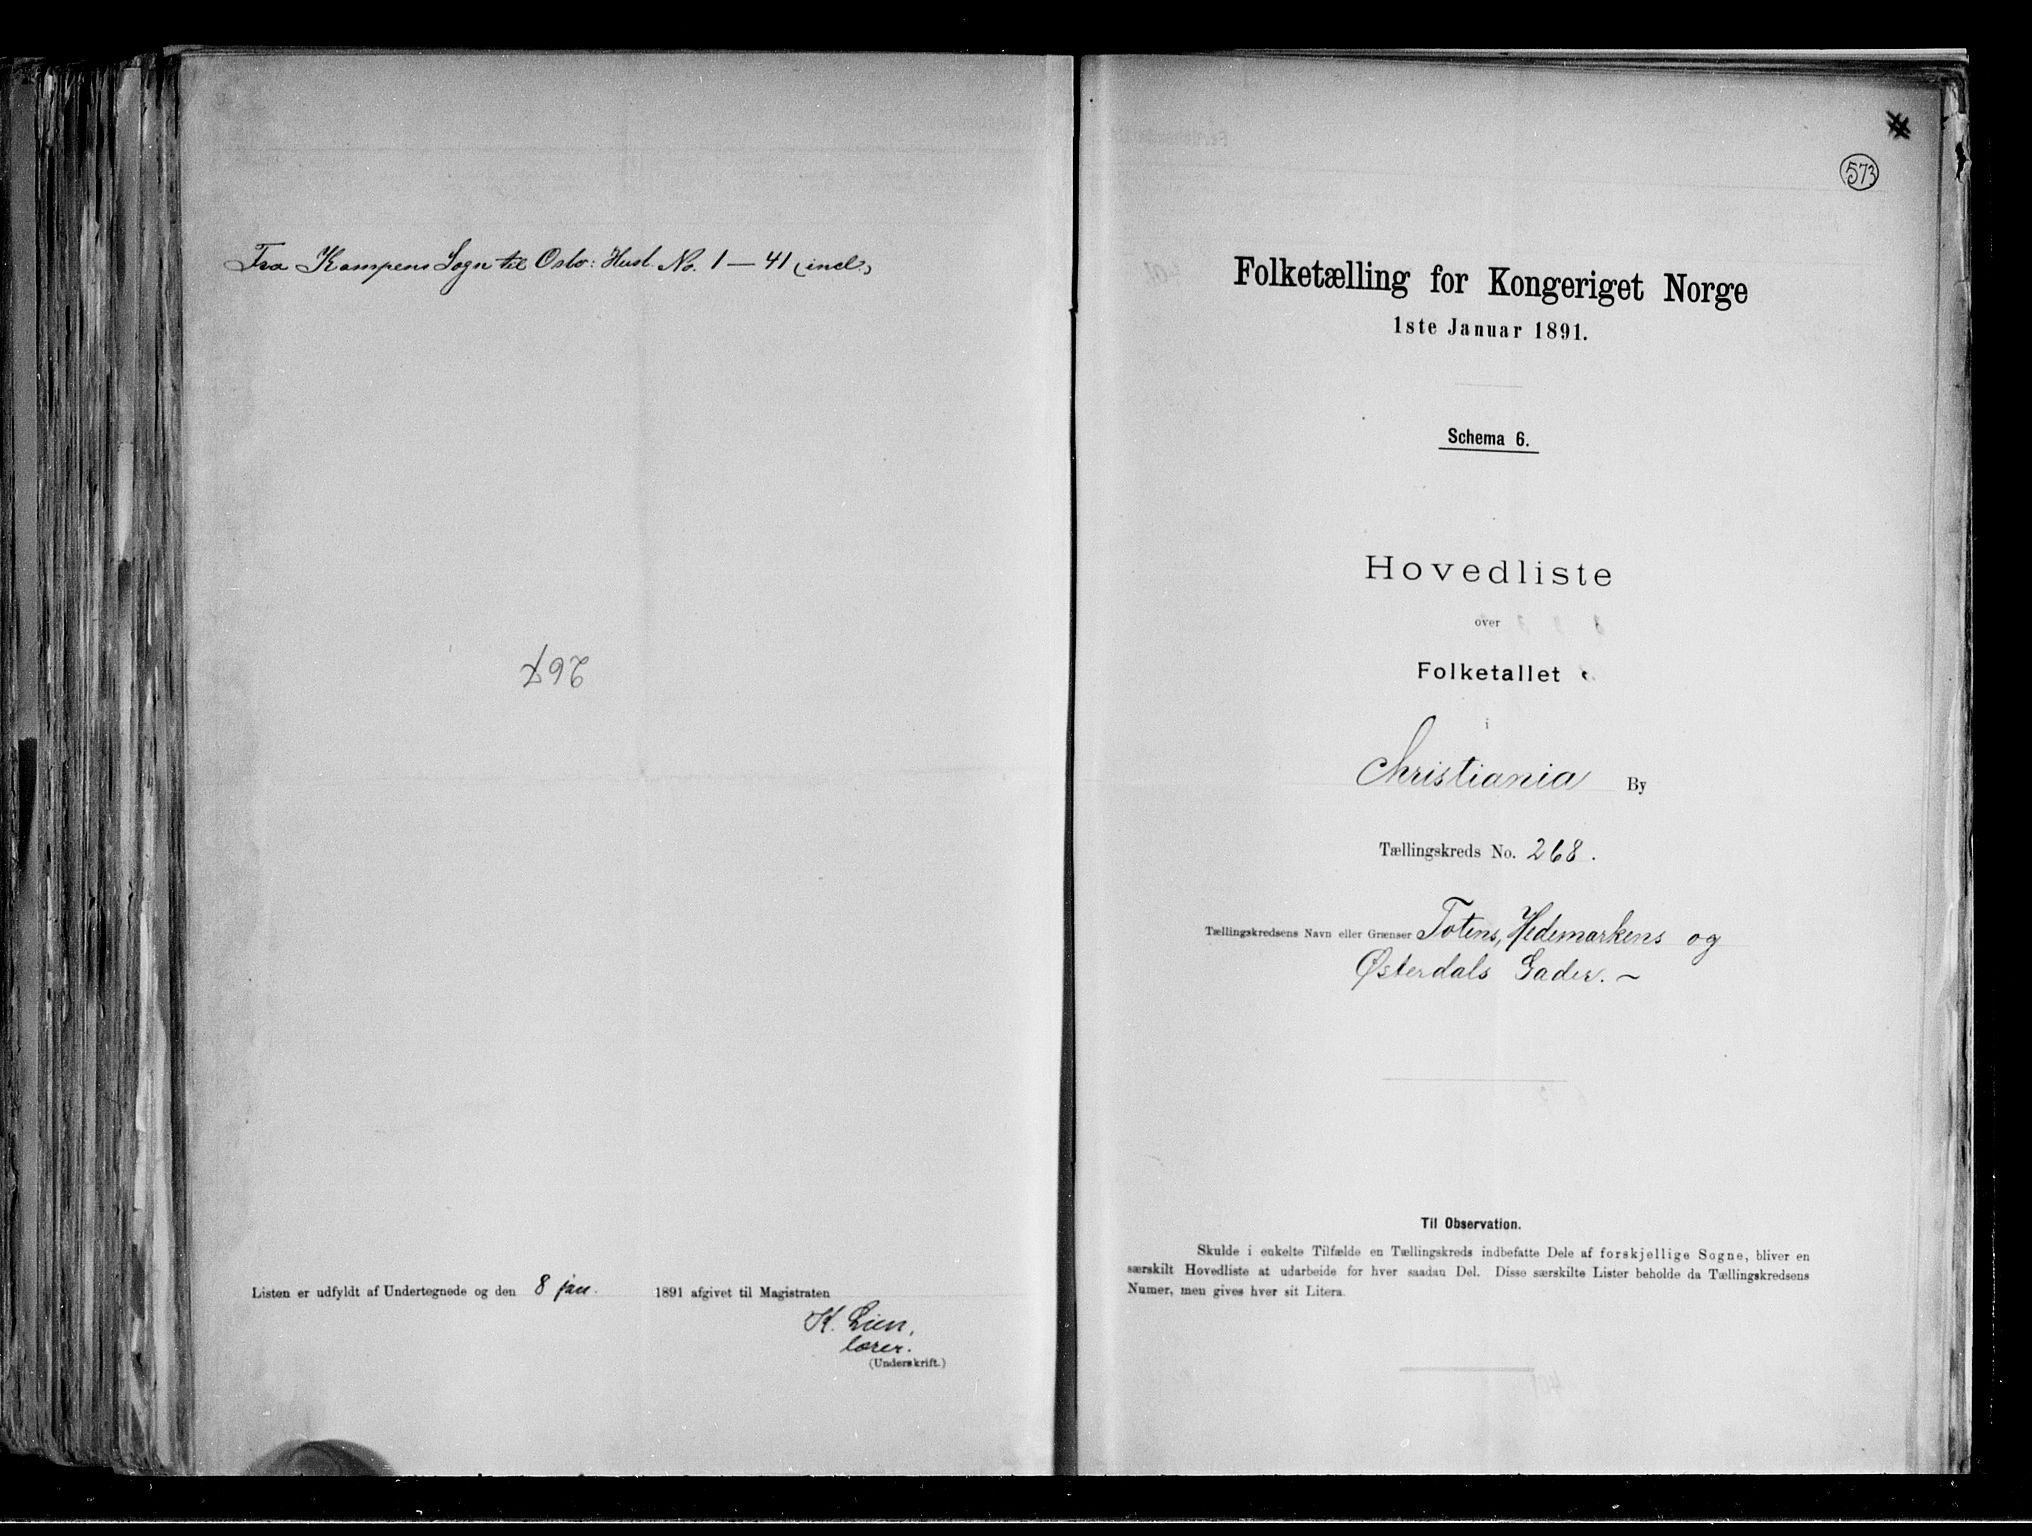 Fra Kampens Sogn til Oslo: Husl. No. 1 — 41 (incl.)
267
Listen er udfyldt af Undertegnede og den 8 jan. 1891 afgivet til Magistraten
K. Lien,
lærer.
(Underskrift.)
573
Folketælling for Kongeriget Norge
1ste Januar 1891.
Schema 6.
Hovedliste
over
Folketallet
i
Christiania By
Tællingskreds No. 268.
Tællingskredsens Navn eller Grænser Totens, Hedemarkens og
Østerdals Gader. ~
Til Observation.
Skulde i enkelte Tilfælde en Tællingskreds indbefatte Dele af forskjellige Sogne, bliver en
særskilt Hovedliste at udarbeide for hver saadan Del. Disse særskilte Lister beholde da Tællingskredsens
Numer, men gives hver sit Litera.